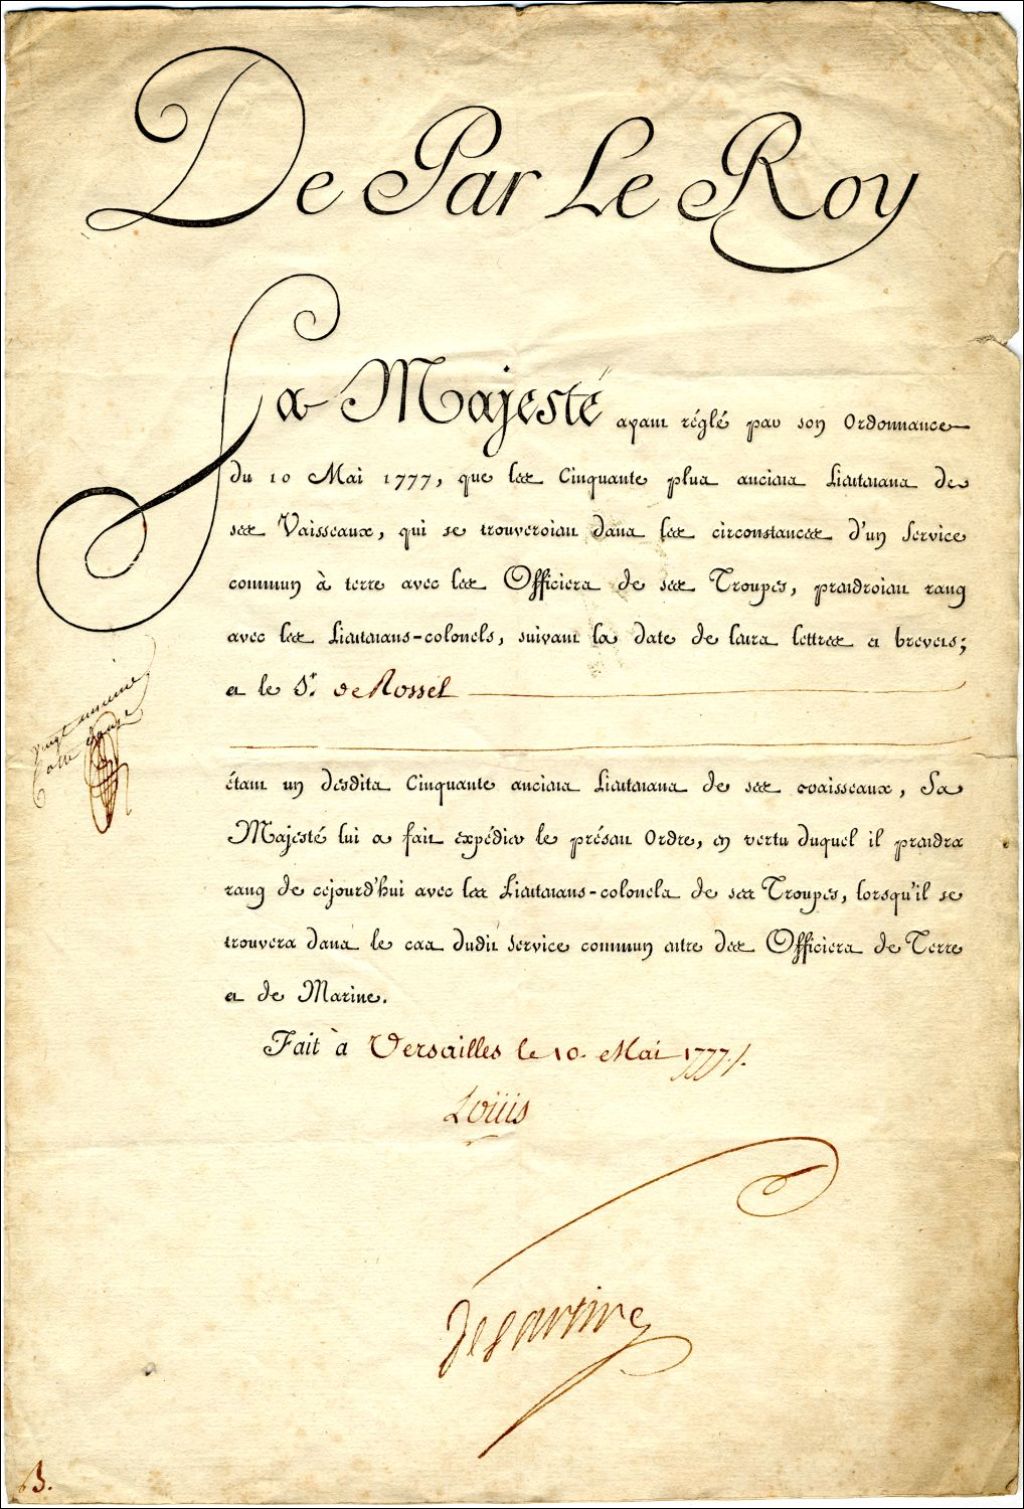 De Par Le Roy
Sa Majesté ayant réglé par son Ordonnance
du 10 Mai 1777, que les Cinquante plus anciens Lieutenans de
ses Vaisseaux, qui se trouveroient dans les circonstances d'un Service
commun à terre avec les Officiers de ses Troupes, prendroient rang
avec les Lieutenans-colonels, suivant la date de leurs lettres et brevets;
et le S.r de Rossel
étant un desdits Cinquante anciens Lieutenans de ses vaisseaux, Sa
Majesté lui a fait expédier le présent Ordre, en vertu duquel il prendra
rang de cejourd'hui avec les Lieutenans-colonels de ses Troupes, lorsqu'il se
trouvera dans le cas dudit Service commun entre des Officiers de Terre
et de Marine.
Fait à Versailles le 10. Mai 1777./.
Loüis
De Sartine
B.